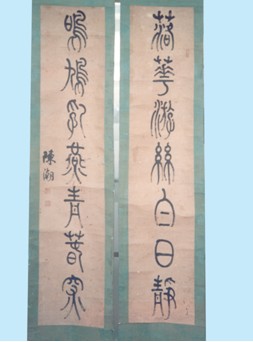 落華游絲白日靜
鳴鳩乳燕青萅深
陳潮